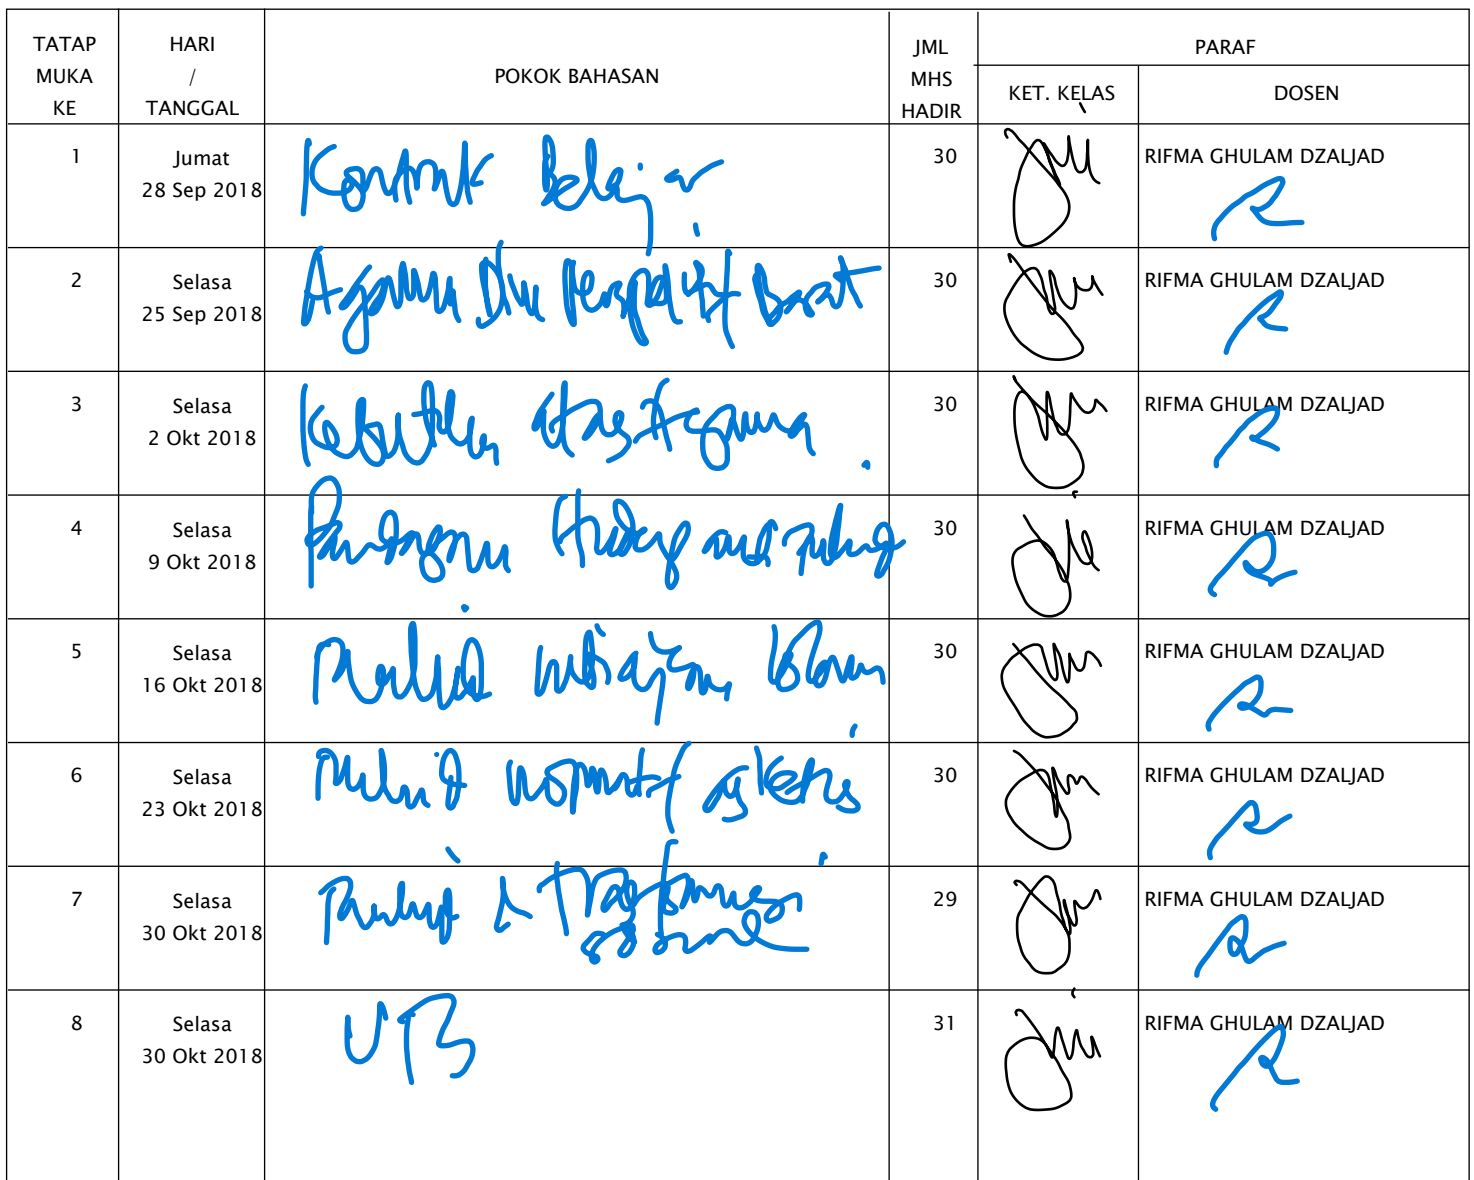 TATAP MUKA KE
HARI / TANGGAL
POKOK BAHASAN
JML MHS HADIR
PARAF
KET. KELAS
DOSEN
1
Jumat
28 Sep 2018
Kontrak Belajar
30
RIFMA GHULAM DZALJAD
2
Selasa
25 Sep 2018
Agama Dlm Perspektif Barat
30
RIFMA GHULAM DZALJAD
3
Selasa
2 Okt 2018
Kebutuhan atas Agama
30
RIFMA GHULAM DZALJAD
4
Selasa
9 Okt 2018
Pandangan Hidup
30
RIFMA GHULAM DZALJAD
5
Selasa
16 Okt 2018
30
RIFMA GHULAM DZALJAD
6
Selasa
23 Okt 2018
normatif asketis
30
RIFMA GHULAM DZALJAD
7
Selasa
30 Okt 2018
29
RIFMA GHULAM DZALJAD
8
Selasa
30 Okt 2018
UTS
31
RIFMA GHULAM DZALJAD